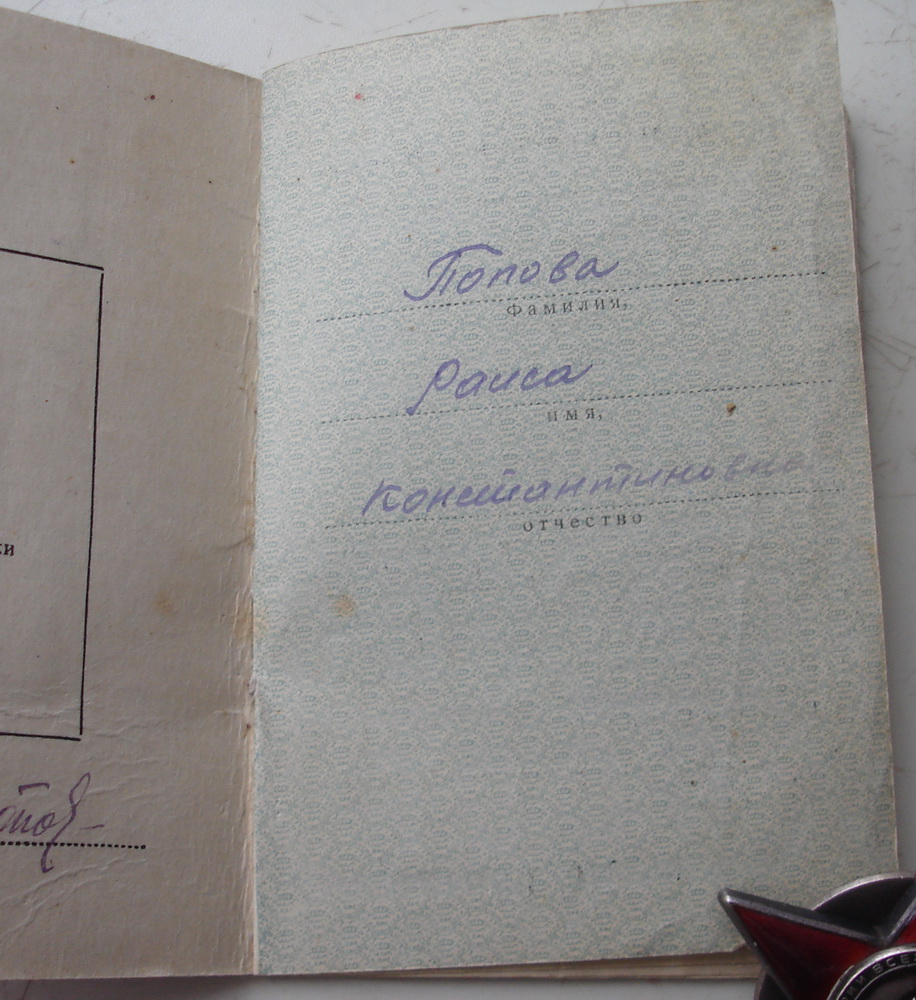 ки
Попова
Фамилия,
Раиса
имя,
Константиновна
отчество
ВСЕ